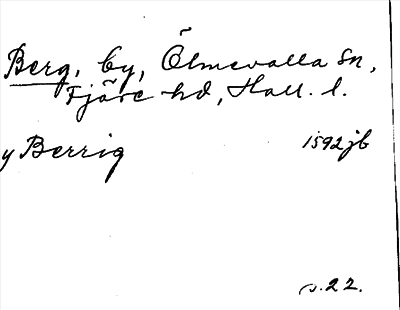 Berg, by, Ölmevalla sn,
Fjäre hd, Hall. l.
y Berrig 1592 jb
s. 22.